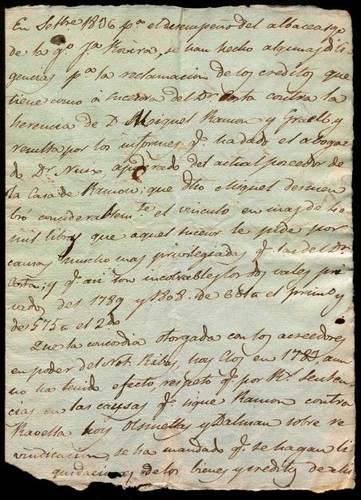 En Setbre 1836 pa el desempeño del albaceasgo
de la qª Jª Rovira, se han hecho algunas dili
gencias pª la reclamacion de los creditos que
tiene como á sucesora del Dr Costa contra la
herencia de D. Miguel Ramon y
resulta por los informes q. ha dado el aboga
do Dr. apoderado del actual poseedor de
la Casa de Ramon; que dho Miguel desmem
bró considerablemte el vinculo en mas de
mil libras que aquel sucesor le pide por
causas mucho mas privilegiadas q. las del Dr.
Costa, y q. asi son incobrables los dos vales pri
vados del 1789 y 1808. de el primero y
de 575 el 2do
Que la concordia otorgada con los acreedores
en poder del Not. Ribas, hoy Clos en 1783 aun
no ha tenido efecto, respeto q. por Rs. Senten
cias en las causas q. sigue Ramon contra
Ravella hoy y Dalmau sobre re
vindicacion, se ha mandado q. se hagan li
quidaciones de los bienes y creditos de